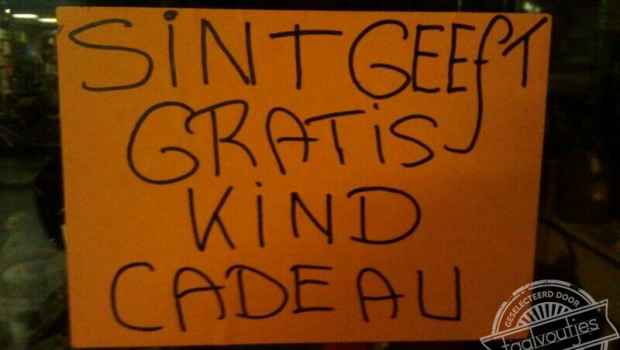 SiNT GEEfT
GRATiS
KiND
CADEAU
GESELECTEERD DOOR
taalvoutjes